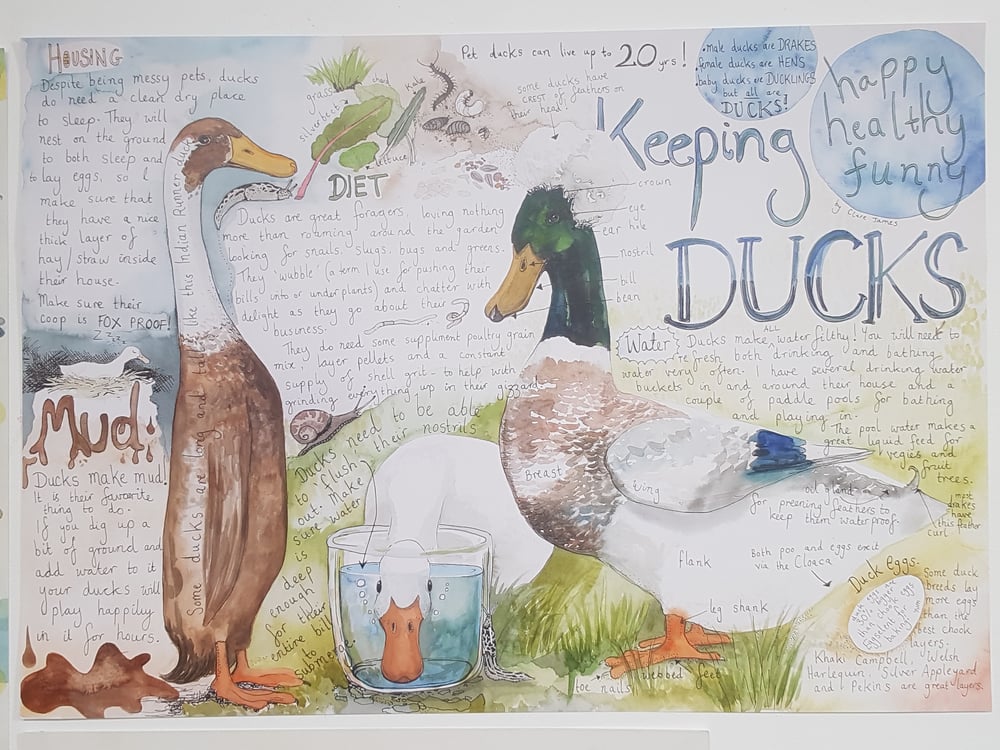 HOUSING
Despite being messy pets, ducks
do need a clean dry place
to sleep. They will
nest on the ground
to both sleep and
to lay eggs, so
make sure that
they have a nice
thick layer of
hay/straw inside
their house.
Make sure their
coop is FOX PROOF!
Zzzzz
Mud!
Ducks make mud!
It is their favourite
thing to do.
If you dig up a
bit of ground and
add water to it
your ducks will
play happily
in it for hours.
Some ducks are long and tall like this Indian Runner duck
Pet ducks can live up to 20 yrs!
grass
silverbeet
chard
kale
lettuce
DIET
Ducks are great foragers, loving nothing
more than roaming around the garden
looking for snails, slugs, bugs and greens.
They 'wubble' (a term I use for pushing their
bills into or under plants) and chatter with
delight as they go about their
business.
They do need some suppliment poultry grain
mix, layer pellets and a constant
supply of shell grit - to help with
grinding everything up in their gizzard
Ducks need to be able
to flush their nostrils
out. Make
sure water
is
deep
enough
for their
entire bill
to
submerge.
some ducks have
a CREST of feathers on
their head!
•male ducks are DRAKES
•female ducks are HENS
•baby ducks are DUCKLINGS
but all are
DUCKS!
happy
healthy
funny
Keeping
DUCKS
by Clare James
crown
eye
ear hole
nostril
bill
bean
Water
Ducks make ALL water filthy! You will need to
refresh both drinking and bathing
water very often. I have several drinking water
buckets in and around their house and a
couple of paddle pools for bathing
and playing in.
The pool water makes a
great liquid feed for
vegies and
fruit
trees.
Breast
wing
oil gland
for preening feathers to
keep them waterproof.
most
drakes
have
this feather
curl
flank
Both poo and eggs exit
via the Cloaca
leg shank
webbed feet
toe nails
Duck eggs-
Some duck
breeds lay
more eggs
than the
best chook
layers.
Khaki Campbell, Welsh
Harlequin, Silver Appleyard
and Pekins are great layers.